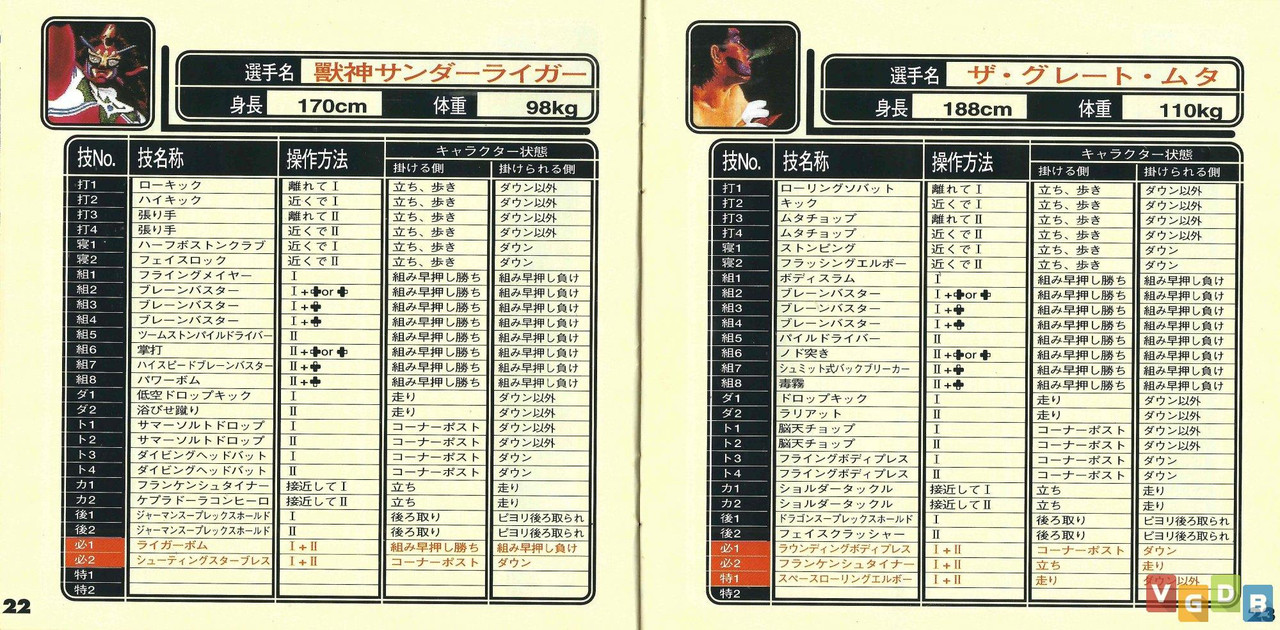 選手名 獣神サンダーライガー
身長 170cm 体重 98kg
技No. 技名称 操作方法 キャラクター状態
掛ける側 掛けられる側
打1 ローキック 離れてⅠ 立ち、歩き ダウン以外
打2 ハイキック 近くでⅠ 立ち、歩き ダウン以外
打3 張り手 離れてⅡ 立ち、歩き ダウン以外
打4 張り手 近くでⅡ 立ち、歩き ダウン以外
寝1 ハーフボストンクラブ 近くでⅠ 立ち、歩き ダウン
寝2 フェイスロック 近くでⅡ 立ち、歩き ダウン
組1 フライングメイヤー Ⅰ 組み早押し勝ち 組み早押し負け
組2 ブレーンバスター Ⅰ+✚or✚ 組み早押し勝ち 組み早押し負け
組3 ブレーンバスター Ⅰ+✚ 組み早押し勝ち 組み早押し負け
組4 ブレーンバスター Ⅰ+✚ 組み早押し勝ち 組み早押し負け
組5 ツームストンパイルドライバー Ⅱ 組み早押し勝ち 組み早押し負け
組6 掌打 Ⅱ+✚or✚ 組み早押し勝ち 組み早押し負け
組7 ハイスピードブレーンバスター Ⅱ+✚ 組み早押し勝ち 組み早押し負け
組8 パワーボム Ⅱ+✚ 組み早押し勝ち 組み早押し負け
ダ1 低空ドロップキック Ⅰ 走り ダウン以外
ダ2 浴びせ蹴り Ⅱ 走り ダウン以外
ト1 サマーソルトドロップ Ⅰ コーナーポスト ダウン以外
ト2 サマーソルトドロップ Ⅱ コーナーポスト ダウン以外
ト3 ダイビングヘッドバット Ⅰ コーナーポスト ダウン
ト4 ダイビングヘッドバット Ⅱ コーナーポスト ダウン
カ1 フランケンシュタイナー 接近してⅠ 立ち 走り
カ2 ケブラドーラコンヒーロ 接近してⅡ 立ち 走り
後1 ジャーマンスープレックスホールド Ⅰ 後ろ取り ピヨリ後ろ取られ
後2 ジャーマンスープレックスホールド Ⅱ 後ろ取り ピヨリ後ろ取られ
必1 ライガーボム Ⅰ+Ⅱ 組み早押し勝ち 組み早押し負け
必2 シューティングスタープレス Ⅰ+Ⅱ コーナーポスト ダウン
特1
特2
22
選手名 ザ・グレート・ムタ
身長 188cm 体重 110kg
技No. 技名称 操作方法 キャラクター状態
掛ける側 掛けられる側
打1 ローリングソバット 離れてⅠ 立ち、歩き ダウン以外
打2 キック 近くでⅠ 立ち、歩き ダウン以外
打3 ムタチョップ 離れてⅡ 立ち、歩き ダウン以外
打4 ムタチョップ 近くでⅡ 立ち、歩き ダウン以外
寝1 ストンピング 近くでⅠ 立ち、歩き ダウン
寝2 フラッシングエルボー 近くでⅡ 立ち、歩き ダウン
組1 ボディスラム Ⅰ 組み早押し勝ち 組み早押し負け
組2 ブレーンバスター Ⅰ+✚or✚ 組み早押し勝ち 組み早押し負け
組3 ブレーンバスター Ⅰ+✚ 組み早押し勝ち 組み早押し負け
組4 ブレーンバスター Ⅰ+✚ 組み早押し勝ち 組み早押し負け
組5 パイルドライバー Ⅱ 組み早押し勝ち 組み早押し負け
組6 ノド突き Ⅱ+✚or✚ 組み早押し勝ち 組み早押し負け
組7 シュミット式バックブリーカー Ⅱ+✚ 組み早押し勝ち 組み早押し負け
組8 毒霧 Ⅱ+✚ 組み早押し勝ち 組み早押し負け
ダ1 ドロップキック Ⅰ 走り ダウン以外
ダ2 ラリアット Ⅱ 走り ダウン以外
ト1 脳天チョップ Ⅰ コーナーポスト ダウン以外
ト2 脳天チョップ Ⅱ コーナーポスト ダウン以外
ト3 フライングボディプレス Ⅰ コーナーポスト ダウン
ト4 フライングボディプレス Ⅱ コーナーポスト ダウン
カ1 ショルダータックル 接近してⅠ 立ち 走り
カ2 ショルダータックル 接近してⅡ 立ち 走り
後1 ドラゴンスープレックスホールド Ⅰ 後ろ取り ピヨリ後ろ取られ
後2 フェイスクラッシャー Ⅱ 後ろ取り ピヨリ後ろ取られ
必1 ラウンディングボディプレス Ⅰ+Ⅱ コーナーポスト ダウン
必2 フランケンシュタイナー Ⅰ+Ⅱ 立ち 走り
特1 スペースローリングエルボー Ⅰ+Ⅱ 走り ダウン以外
特2
23
VGDB